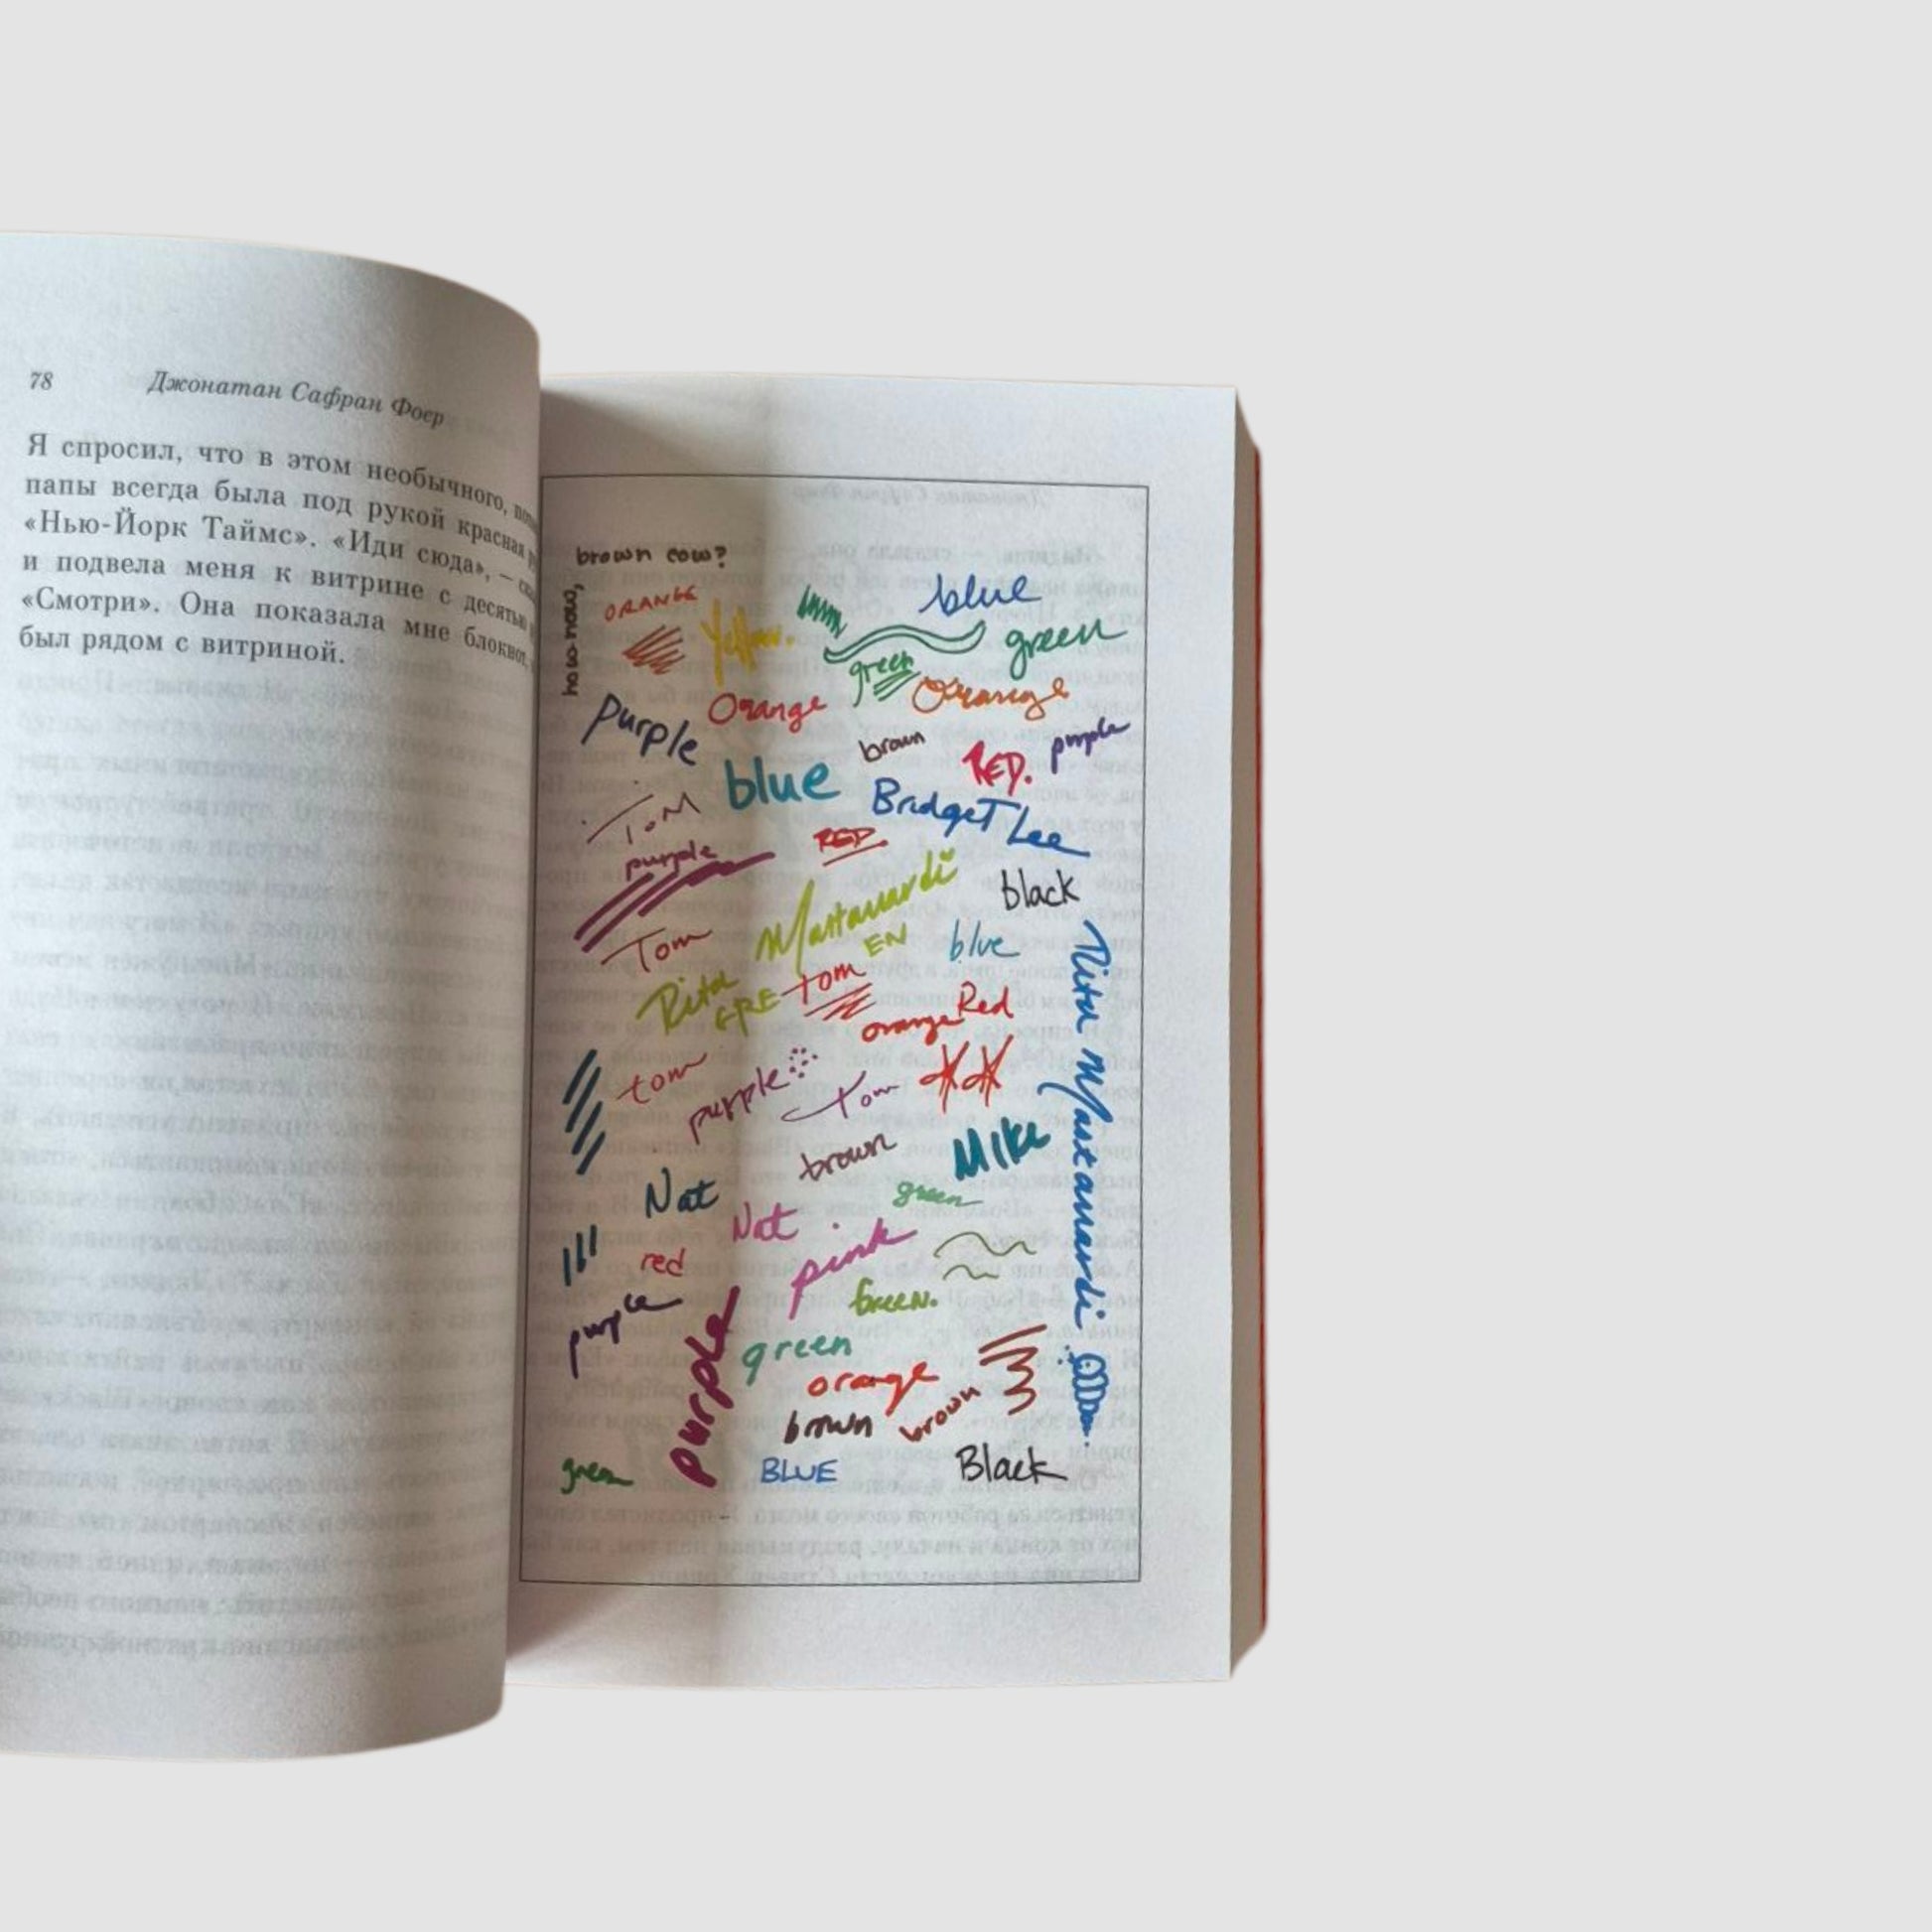 78
Джонатан Сафран Фоер
Я спросил, что в этом необычного,
папы всегда была под рукой красная
«Нью-Йорк Таймс». «Иди сюда», –
и подвела меня к витрине с десятью
«Смотри». Она показала мне блокнот,
был рядом с витриной.
how now,
brown cow?
ORANGE
Yellow.
blue
green
green
Orange
Orange
purple
brown
RED.
purple
blue
TOM
BridgeT Lee
purple
RED
black
Mastanardi
EN
Tom
blue
Rita
GRE
tom
Red
orange
Rita Mastanardi
tom
purple
Tom
brown
Mike
Nat
green
Nat
red
pink
purple
Green.
purple
green
orange
brown
brown
green
BLUE
Black